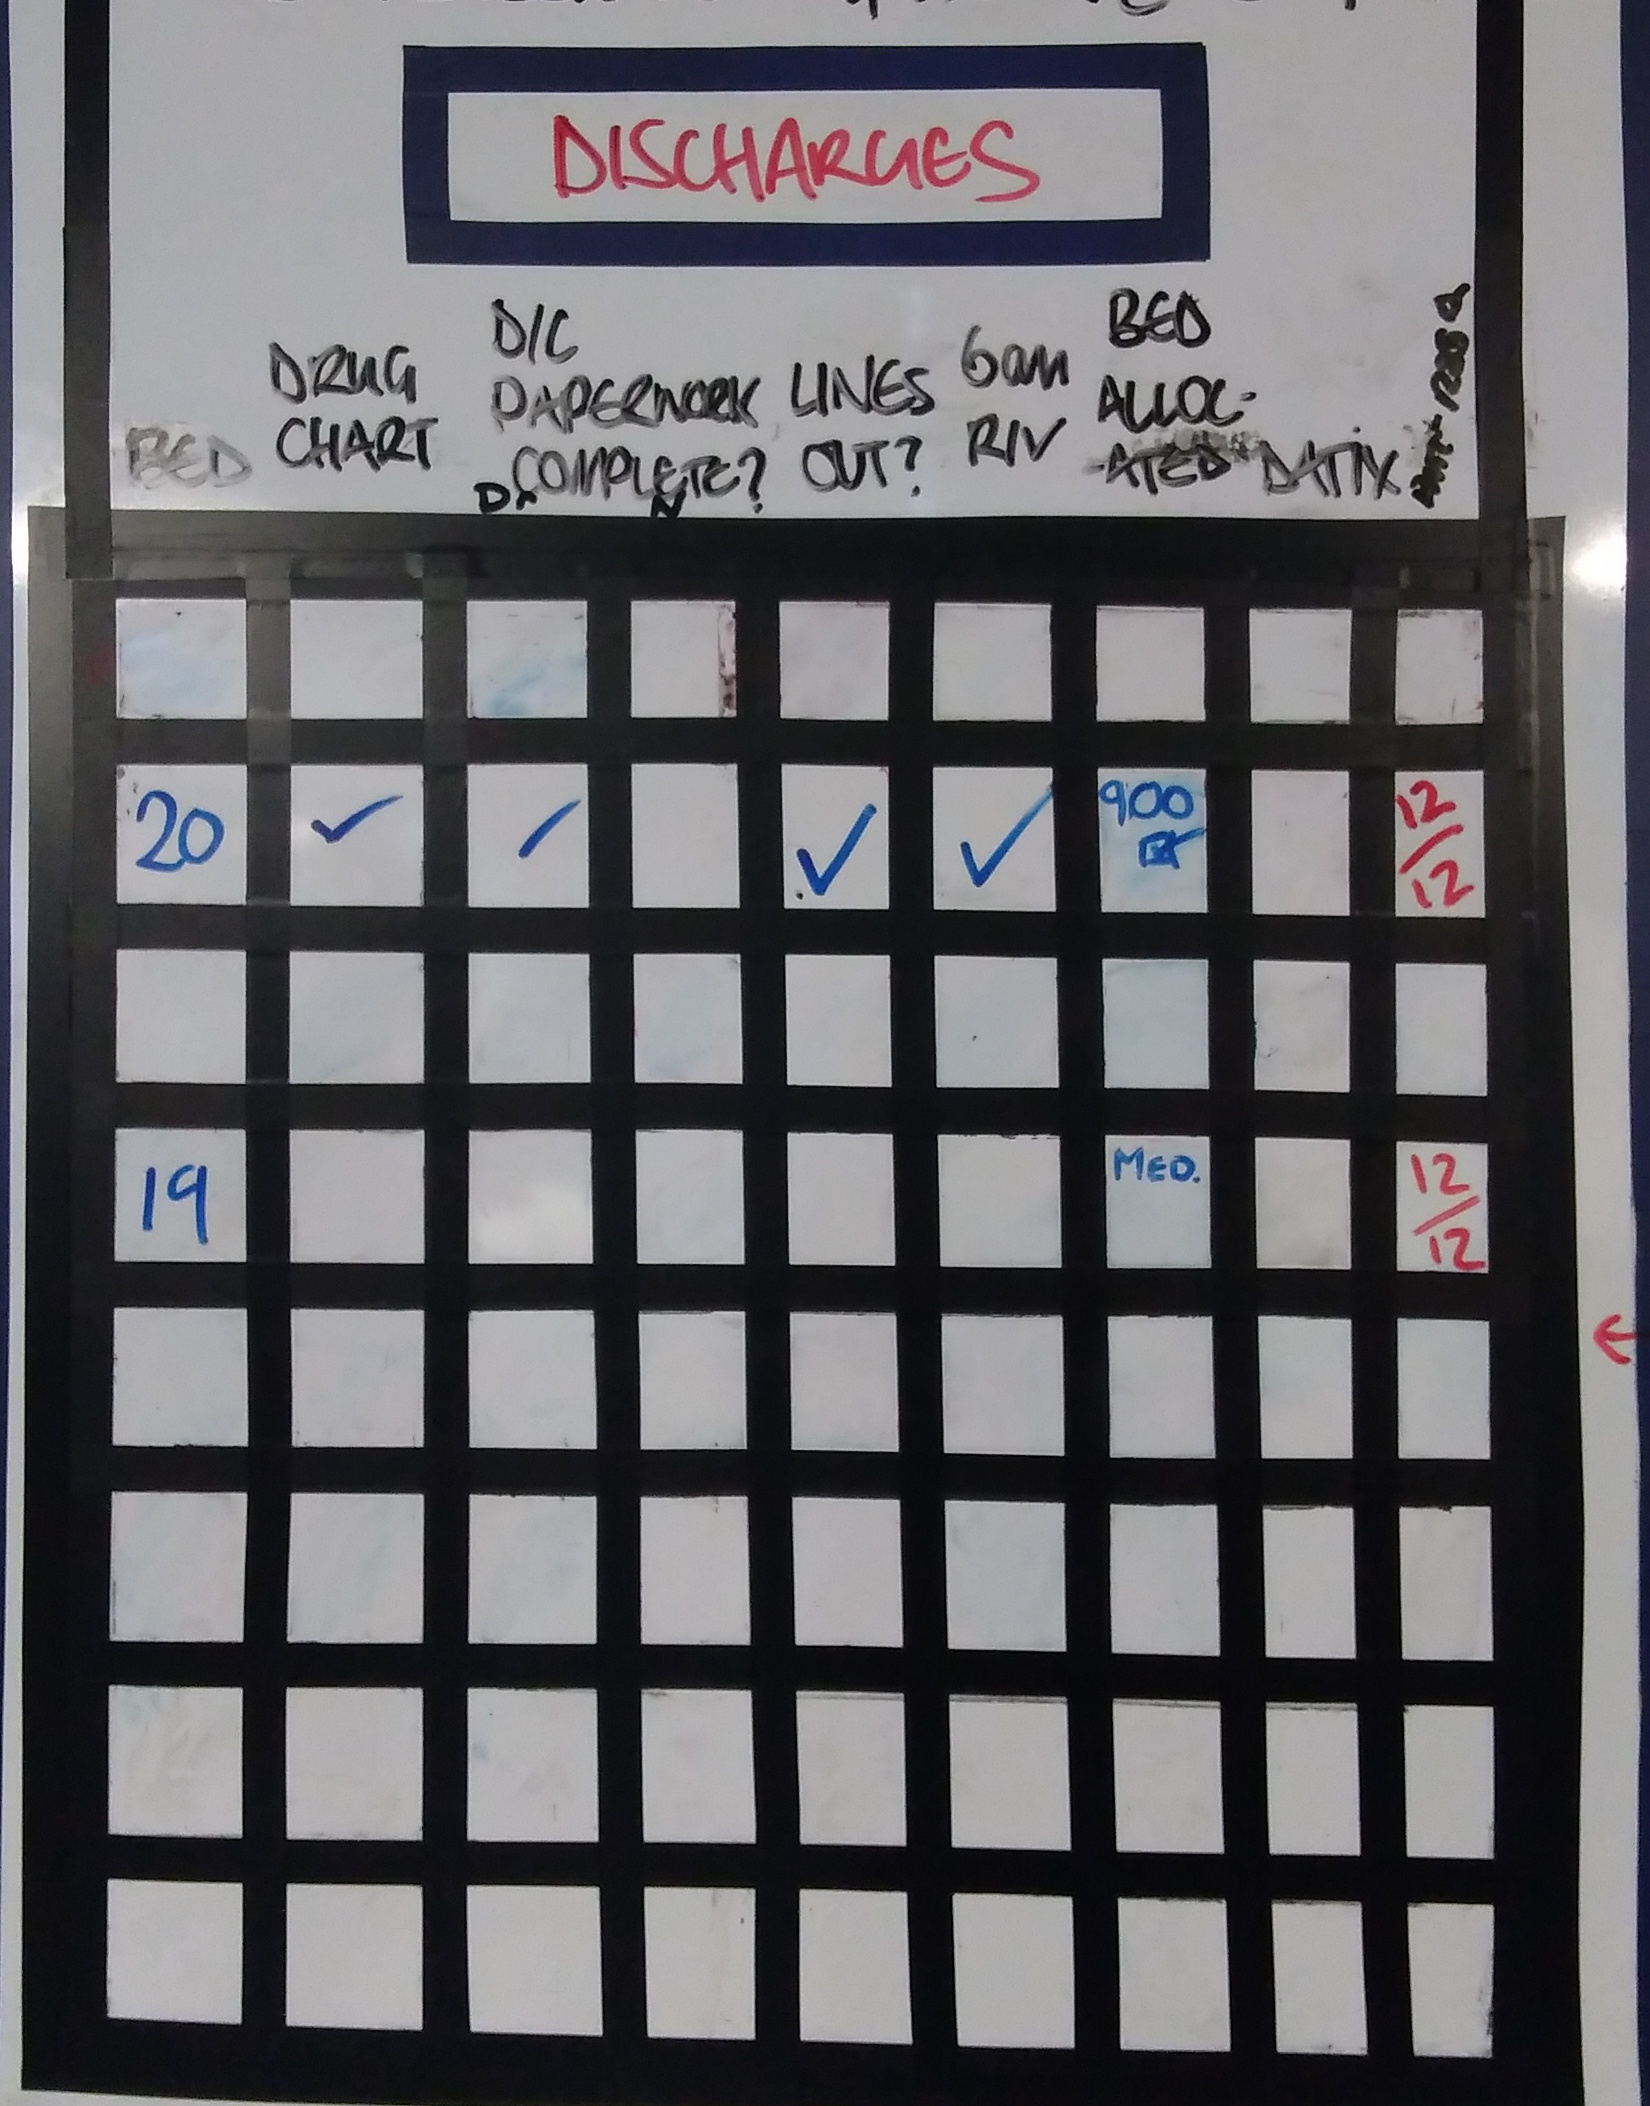 DISCHARGES
BED
DRUG
CHART
D/C
PAPERWORK
COMPLETE?
DR
N
LINES
OUT?
6am
R/V
BED
ALLOC-
-ATED
DATIX
20 ✓ ✓ ✓ ✓ 900 12/12
19 MED. 12/12
←